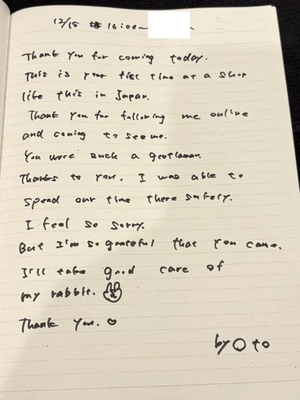 12/15 16:00~
Thank you for coming today.
This is your first time at a shop
like this in Japan.
Thank you for following me online
and coming to see me.
You were such a gentleman.
Thanks to you. I was able to
spend our time there safely.
I feel so sorry.
But I'm so grateful that you came.
I'll take good care of
my rabbit.
Thank you.
by to